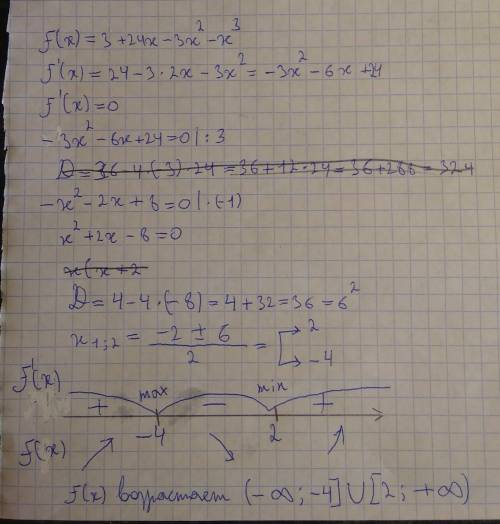 f(x) = 3 + 24x - 3x² - x³
f'(x) = 24 - 3 · 2x - 3x² = -3x² - 6x + 24
f'(x) = 0
- 3x² - 6x + 24 = 0 | : 3
D = 36 - 4 · (-3) · 24 = 36 + 12 · 24 = 36 + 288 = 324
- x² - 2x + 8 = 0 | · (-1)
x² + 2x - 8 = 0
x(x + 2
D = 4 - 4 · (-8) = 4 + 32 = 36 = 6²
x₁;₂ = (-2 ± 6)/2 = [→ 2 → -4
f'(x) max min
+ - +
-4 2
f(x) ↗ ↘ ↗
f(x) возрастает (-∞; -4] ∪ [2; +∞)